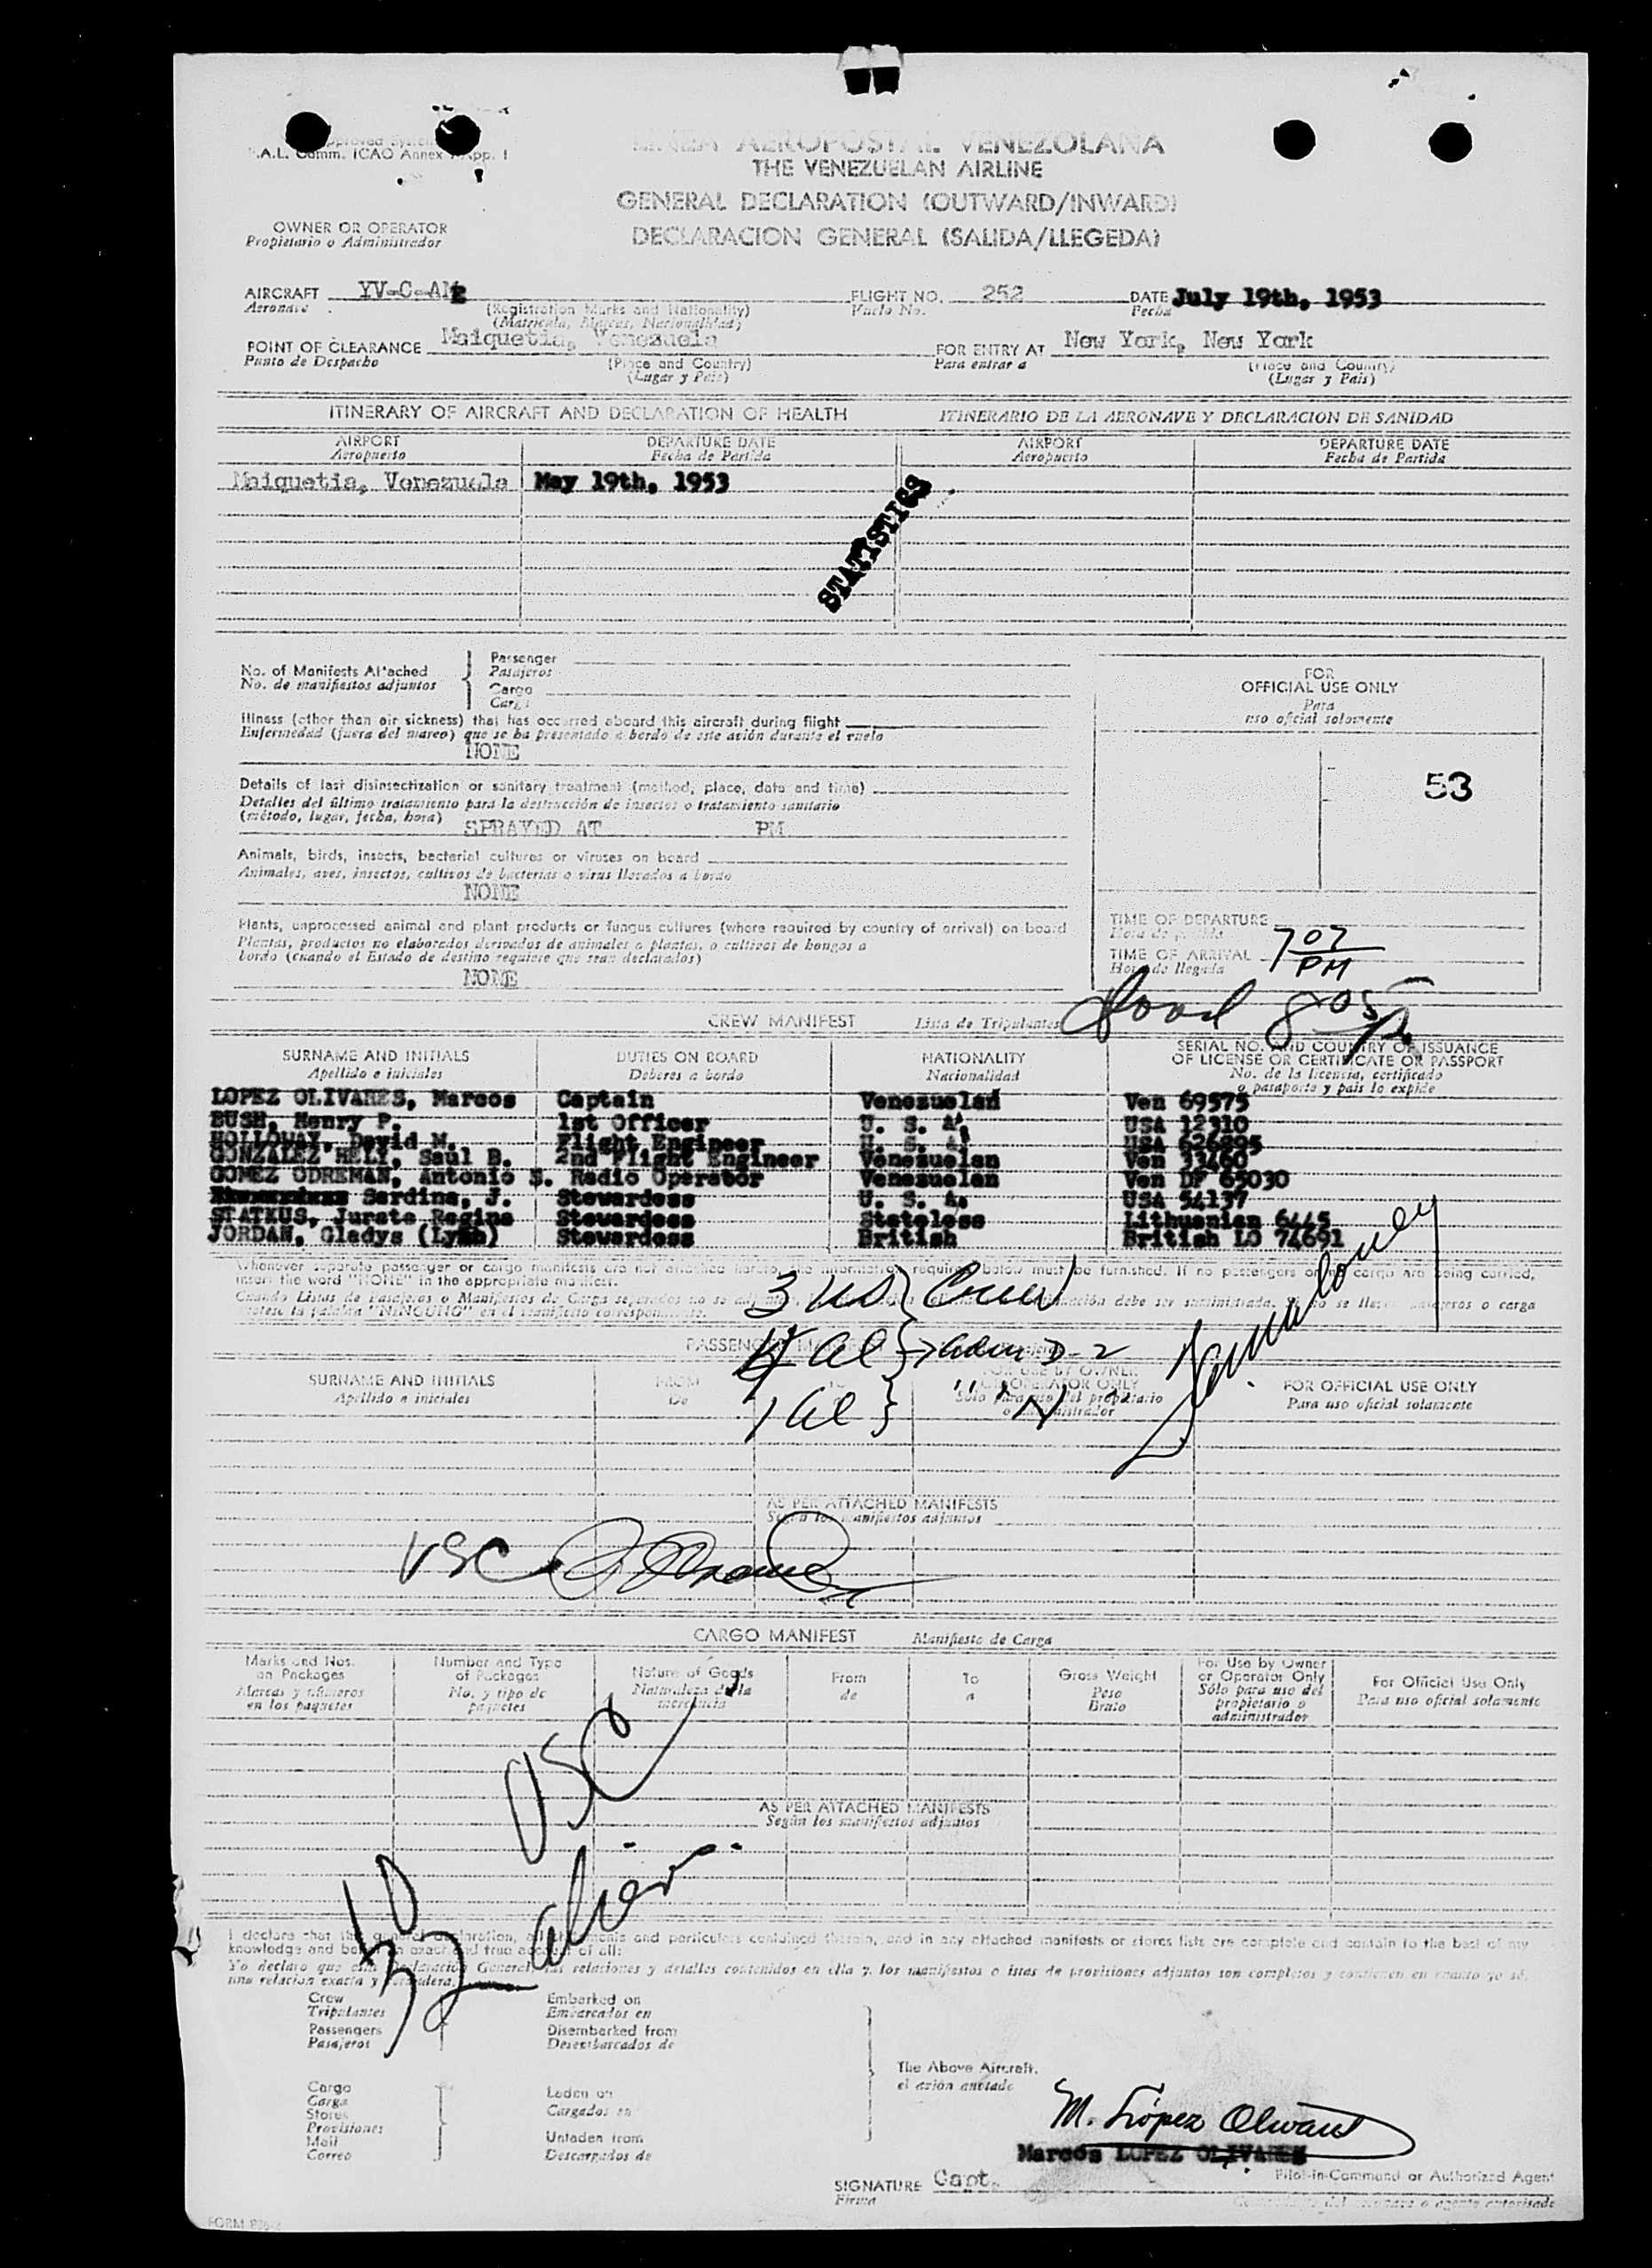 Approved System
I.A.L. Comm. ICAO Annex App. 1
LINEA AEROPOSTAL VENEZOLANA
THE VENEZUELAN AIRLINE
GENERAL DECLARATION (OUTWARD/INWARD)
DECLARACION GENERAL (SALIDA/LLEGEDA)
OWNER OR OPERATOR
Propietario o Administrador
AIRCRAFT YV-C-AME FLIGHT NO. 252 DATE July 19th, 1953
Aeronave (Registration Marks and Nationality) Vuelo No. Fecha
(Matricula, Marcas, Nacionalidad)
POINT OF CLEARANCE Maiquetia, Venezuela FOR ENTRY AT New York, New York
Punto de Despacho (Place and Country) Para entrar a (Place and Country)
(Lugar y Pais) (Lugar y Pais)
ITINERARY OF AIRCRAFT AND DECLARATION OF HEALTH ITINERARIO DE LA AERONAVE Y DECLARACION DE SANIDAD
AIRPORT DEPARTURE DATE AIRPORT DEPARTURE DATE
Aeropuerto Fecha de Partida Aeropuerto Fecha de Partida
Maiquetia, Venezuela May 19th, 1953
STATISTICS
No. of Manifests Attached Passenger
No. de manifiestos adjuntos Pasajeros
Cargo
Carga
FOR
OFFICIAL USE ONLY
Para
uso oficial solamente
53
Illness (other than air sickness) that has occurred aboard this aircraft during flight
Enfermedad (fuera del mareo) que se ha presentado a bordo de este avión durante el vuelo
NONE
Details of last disinsectization or sanitary treatment (method, place, date and time)
Detalles del último tratamiento para la destrucción de insectos o tratamiento sanitario
(método, lugar, fecha, hora) SPRAYED AT PM
Animals, birds, insects, bacterial cultures or viruses on board
Animales, aves, insectos, cultivos de bacterias o virus llevados a bordo
NONE
Plants, unprocessed animal and plant products or fungus cultures (where required by country of arrival) on board
Plantas, productos no elaborados derivados de animales o plantas, o cultivos de hongos a
bordo (cuando el Estado de destino requiere que sean declarados)
NONE
TIME OF DEPARTURE
Hora de partida
TIME OF ARRIVAL 7 07 PM
Hora de llegada
8 05 P
CREW MANIFEST Lista de Tripulantes
SURNAME AND INITIALS DUTIES ON BOARD NATIONALITY SERIAL NO. AND COUNTRY OF ISSUANCE
OF LICENSE OR CERTIFICATE OR PASSPORT
Apellido e iniciales Deberes a bordo Nacionalidad No. de la licencia, certificado
o pasaporte y pais lo expide
LOPEZ OLIVARES, Marcos Captain Venezuelan Ven 69575
BUSH, Henry P. 1st Officer U. S. A. USA 12310
HOLLOWAY, David M. Flight Engineer U. S. A. USA 626895
GONZALEZ HELI, Saul B. 2nd Flight Engineer Venezuelan Ven 33460
GOMEZ ODREMAN, Antonio S. Radio Operator Venezuelan Ven DF 65030
Sardina, J. Stewardess U. S. A. USA 54137
STATKUS, Jurate Regina Stewardess Stateless Lithuanian 6445
JORDAN, Gladys (Lymb) Stewardess British British LO 74691
Whenever separate passenger or cargo manifests are not attached hereto, the information required below must be furnished. If no passengers or no cargo are being carried,
insert the word "NONE" in the appropriate manifest.
Cuando Listas de Pasajeros o Manifiestos de Carga separados no se adjuntan, información debe ser suministrada. Si no se llevan pasajeros o carga
anótese la palabra "NINGUNO" en el manifiesto correspondiente.
3 US } Crew
4 al } → adm D-2
1 al } " " N
PASSENGER
SURNAME AND INITIALS FROM TO FOR USE BY OWNER
OR OPERATOR ONLY FOR OFFICIAL USE ONLY
Apellido e iniciales De Sólo para uso del propietario
o administrador Para uso oficial solamente
AS PER ATTACHED MANIFESTS
Según los manifiestos adjuntos
VSC
CARGO MANIFEST Manifiesto de Carga
Marks and Nos.
on Packages
Marcas y números
en los paquetes
Number and Type
of Packages
No. y tipo de
paquetes
Nature of Goods
Naturaleza de la
mercancia
From
de
To
a
Gross Weight
Peso
Bruto
For Use by Owner
or Operator Only
Sólo para uso del
propietario o
administrador
For Official Use Only
Para uso oficial solamente
AS PER ATTACHED MANIFESTS
Según los manifiestos adjuntos
I declare that this general declaration, all statements and particulars contained therein, and in any attached manifests or stores lists are complete and contain to the best of my
knowledge and belief an exact and true account of all:
Yo declaro que esta Declaración General, las relaciones y detalles contenidos en ella y los manifiestos o listas de provisiones adjuntos son completos y contienen en cuanto yo sé,
una relación exacta y verdadera.
Crew
Tripulantes
Passengers
Pasajeros
Embarked on
Embarcados en
Disembarked from
Desembarcados de
Cargo
Carga
Stores
Provisiones
Mail
Correo
Laden on
Cargados en
Unladen from
Descargados de
The Above Aircraft.
el avión anotado
M. López Olivares
Marcos LOPEZ OLIVARES
SIGNATURE Capt. Pilot-in-Command or Authorized Agent
Firma